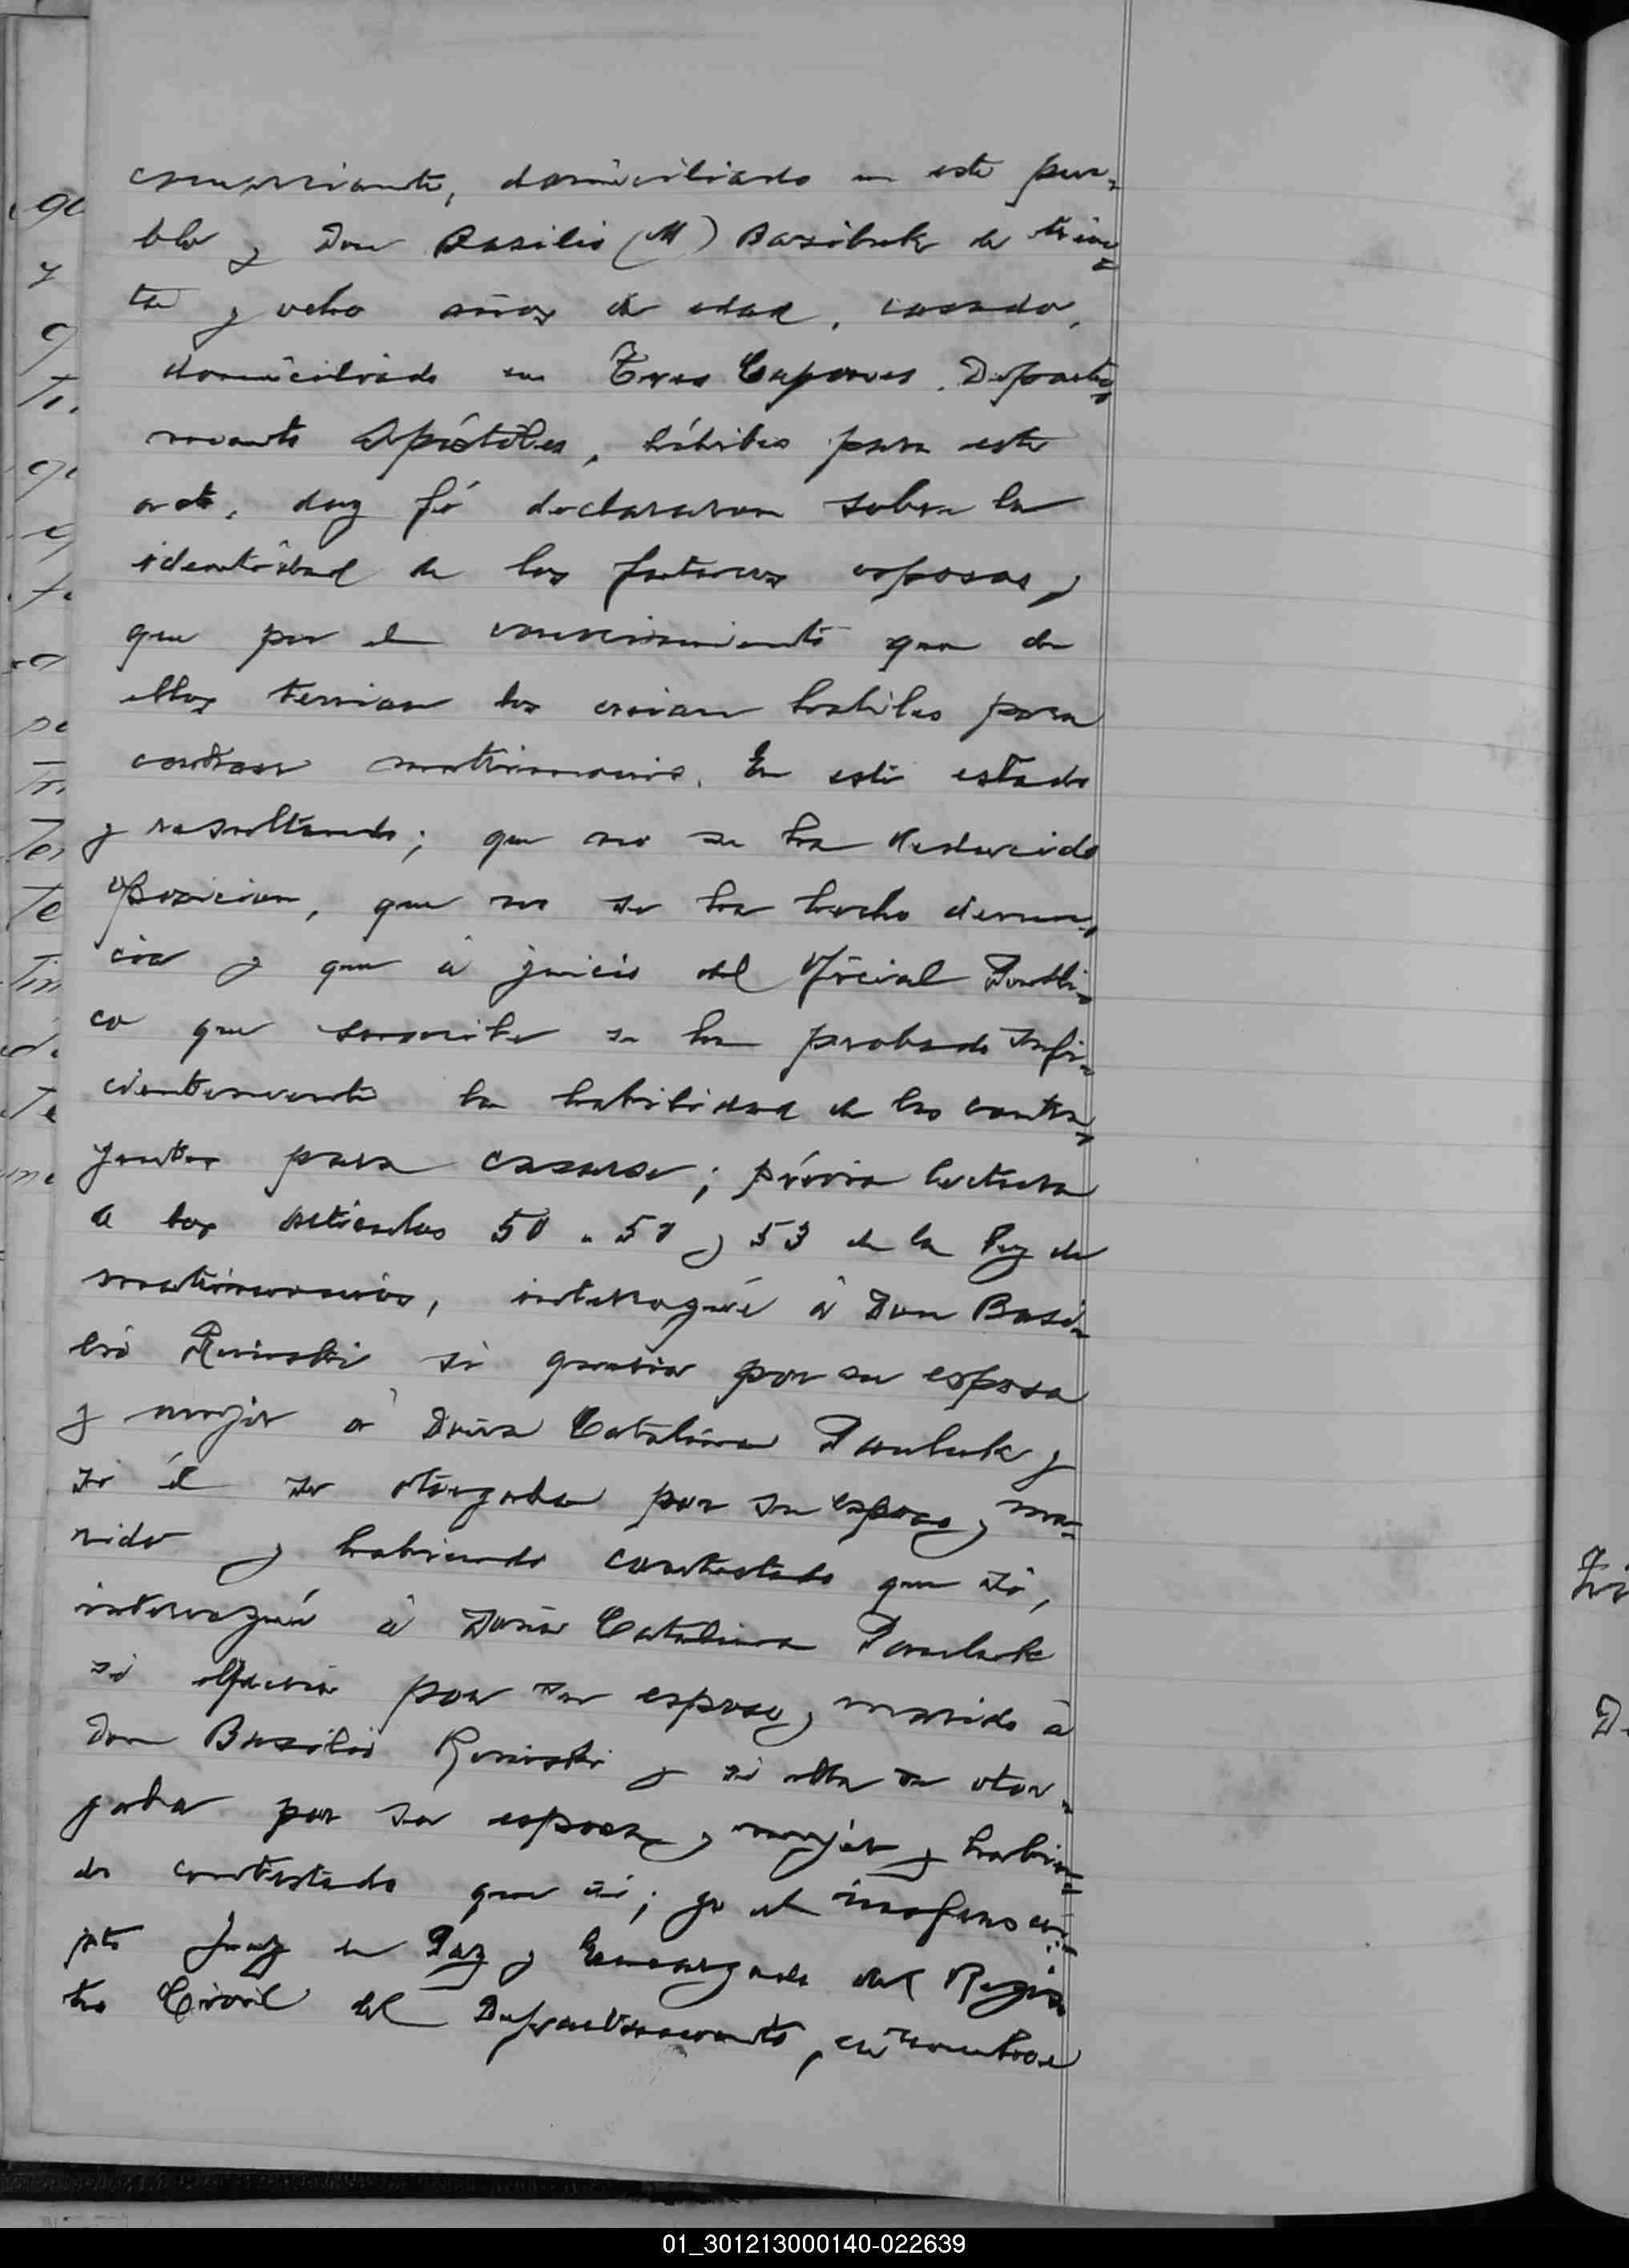 comerciante, domiciliado en este pue-
blo y Don Basilio (M) Bazibuk de trein=
ta y ocho años de edad, casado,
domiciliado en Tres Capones, Departa-
mento Apóstoles, hábiles para este
acto, doy fé declararon sobre la
identidad de los futuros esposos y
que por el conocimiento que de
ellos tenian los creian habiles para
contraer matrimonio. En este estado
y resultando; que no se ha deducido
oposicion, que no se ha hecho denun-
cia y que á juicio del Oficial Públi-
co que suscribe se ha probado sufi-
cientemente la habilidad de los contra-
yentes para casarse; prévia lectura
a los articulos 50 . 51 y 53 de la ley de
matrimonios, interrogué á Don Basi-
lio si queria por su esposa
y mujer á Doña Catalina y
si él se otorgaba por su esposo y ma-
rido y habiendo contestado que si,
interrogué á Doña Catalina
si queria por su esposo y marido á
Don Basilio y si ella se otor-
gaba por su esposa y mujer y habien=
do contestado que si; yo el infrascri-
pto Juez de Paz y Encargado del Regis-
tro Civil del Departamento, en nombre
01_301213000140-022639